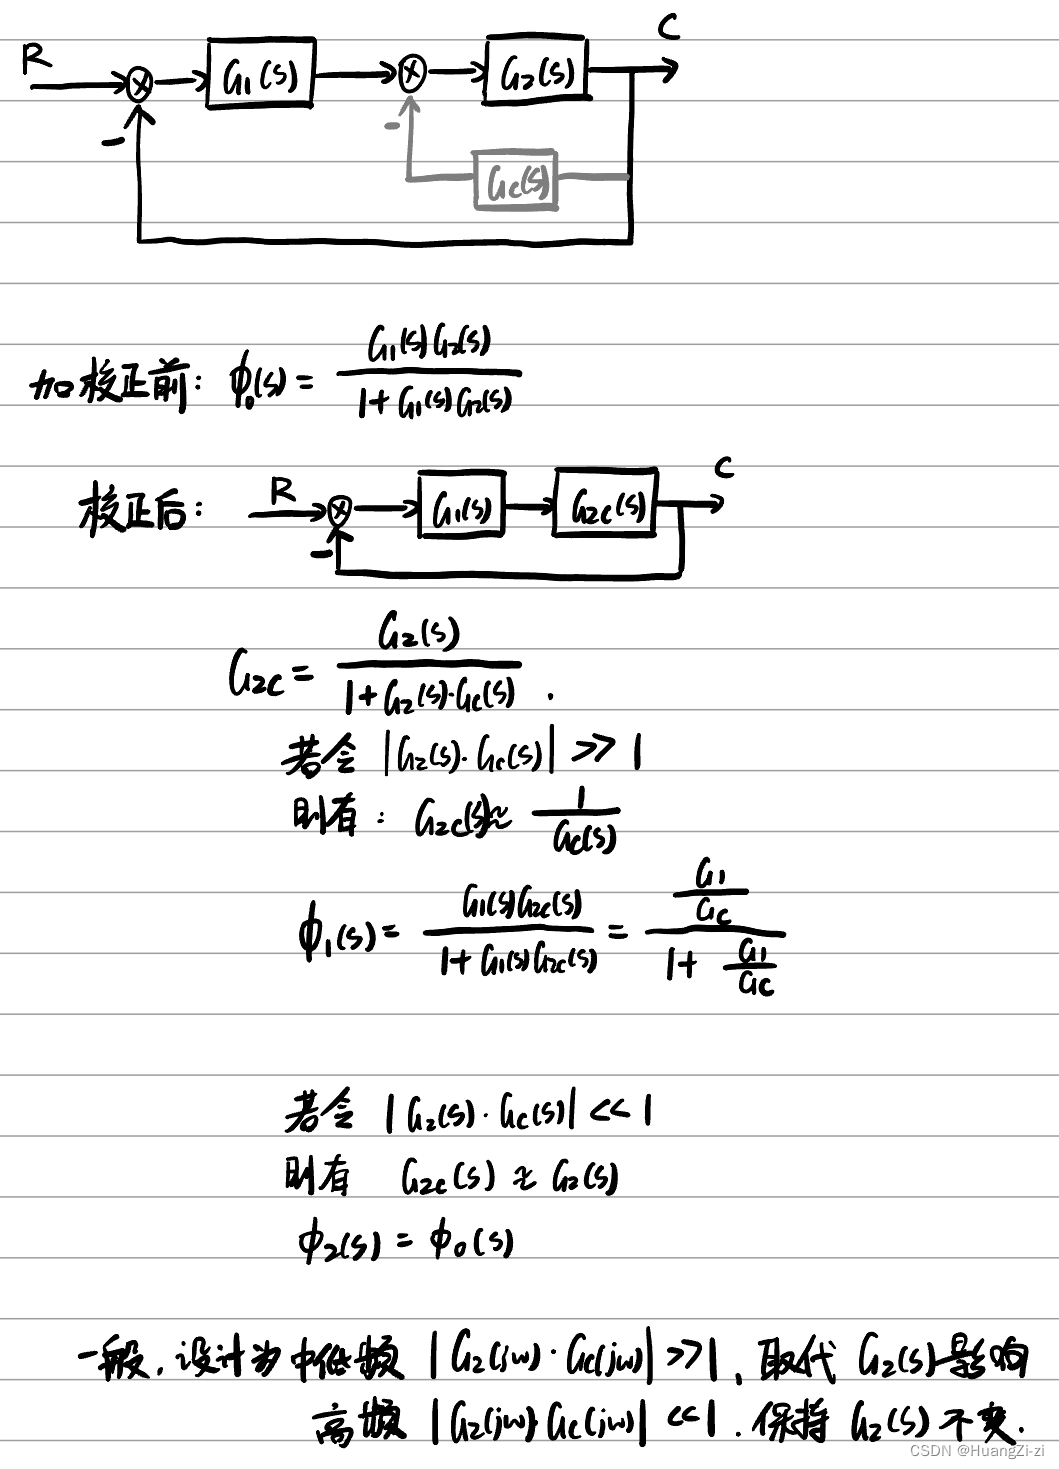 R G₁(s) G₂(s) C
- -
Gc(s)
加校正前: ϕ₀(s) = G₁(s)G₂(s) / 1+G₁(s)G₂(s)
校正后: R G₁(s) G₂c(s) C
-
G₂c = G₂(s) / 1+G₂(s)·Gc(s) .
若令 |G₂(s)·Gc(s)| ≫ 1
则有: G₂c(s) ≈ 1 / Gc(s)
ϕ₁(s) = G₁(s)G₂c(s) / 1+G₁(s)G₂c(s) = G₁/Gc / 1+ G₁/Gc
若令 |G₂(s)·Gc(s)| << 1
则有 G₂c(s) ≈ G₂(s)
ϕ₂(s) = ϕ₀(s)
一般,设计为中低频 |G₂(jω)·Gc(jω)| ≫1、取代 G₂(s)影响
高频 |G₂(jω)·Gc(jω)| <<1.保持 G₂(s) 不变.
CSDN @HuangZi-zi